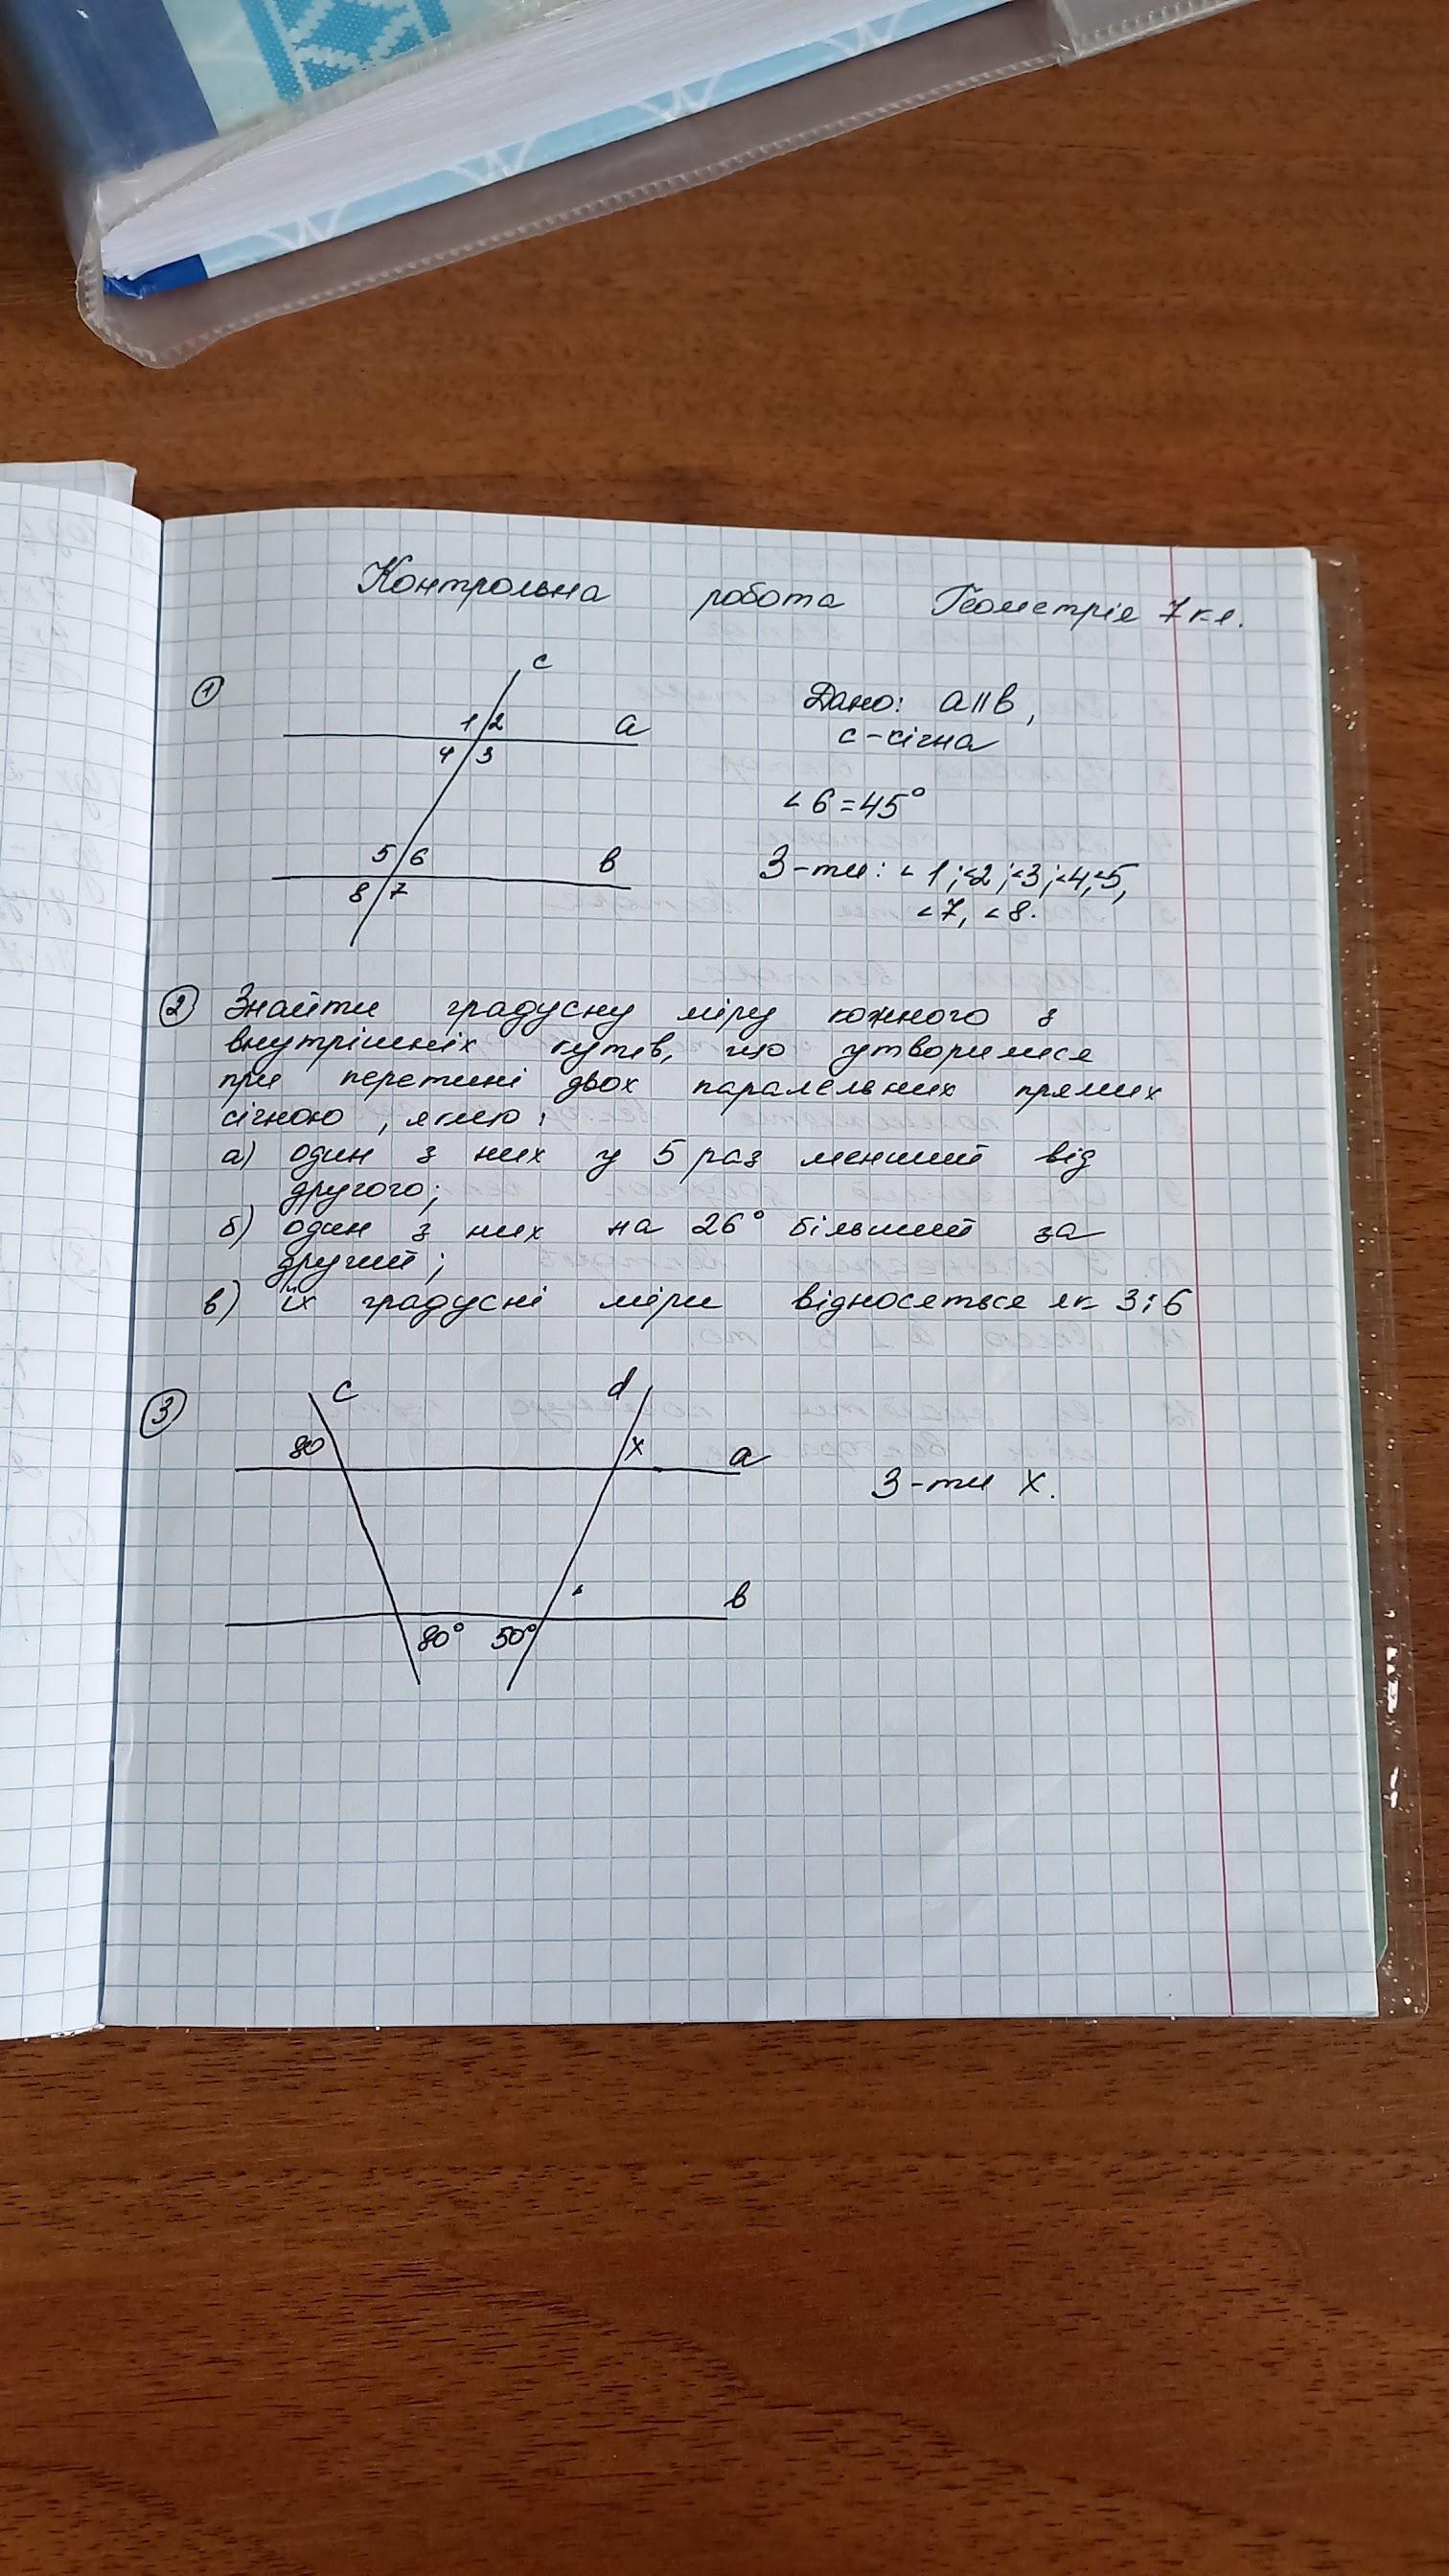 Контрольна робота Геометрія 7 кл.
1
c
1 2
a
4 3
5 6
в
8 7
Дано: a||в,
c-січна
<6=45°
З-ти: <1;<2;<3;<4,<5,
<7, <8.
2 Знайти градусну міру кожного з
внутрішніх кутів, що утворилися
при перетині двох паралельних прямих
січною, якщо:
а) один з них у 5 раз менший від
другого;
б) один з них на 26° більший за
другий;
в) їх градусні міри відносяться як 3:6
3
c
d
80
x
a
З-ти x.
в
80° 50°